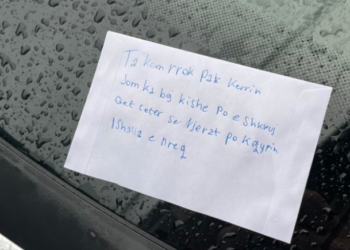 Ta kom rrok pak kerrin
Jom ka boj kishe po e shkruj
qet leter se njerzt po kqyrin
Ishalla e nreq